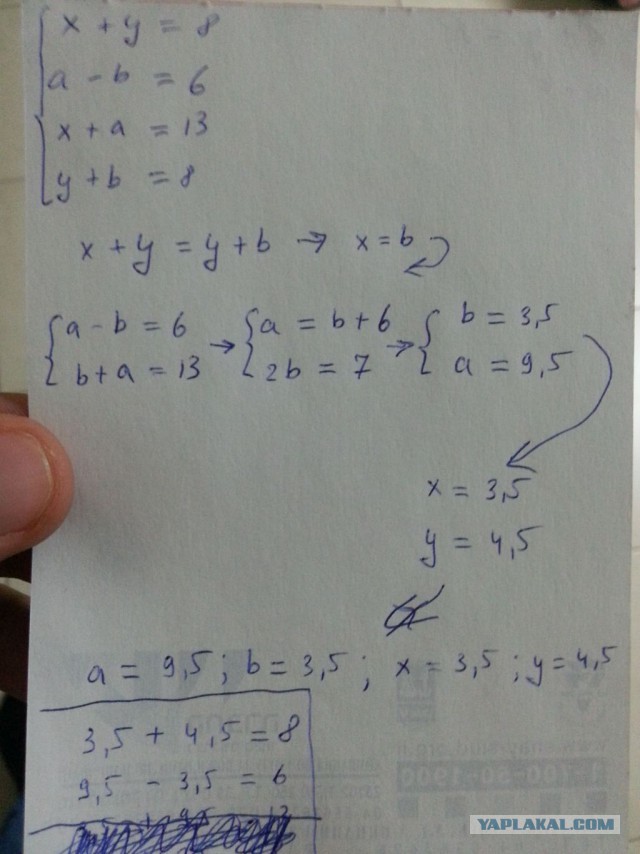 x + y = 8
a - b = 6
x + a = 13
y + b = 8
x + y = y + b → x = b
a - b = 6 → a = b + 6 → b = 3,5
b + a = 13 2b = 7 a = 9,5
x = 3,5
y = 4,5
a = 9,5 ; b = 3,5 ; x = 3,5 ; y = 4,5
3,5 + 4,5 = 8
9,5 - 3,5 = 6
YAPLAKAL.COM